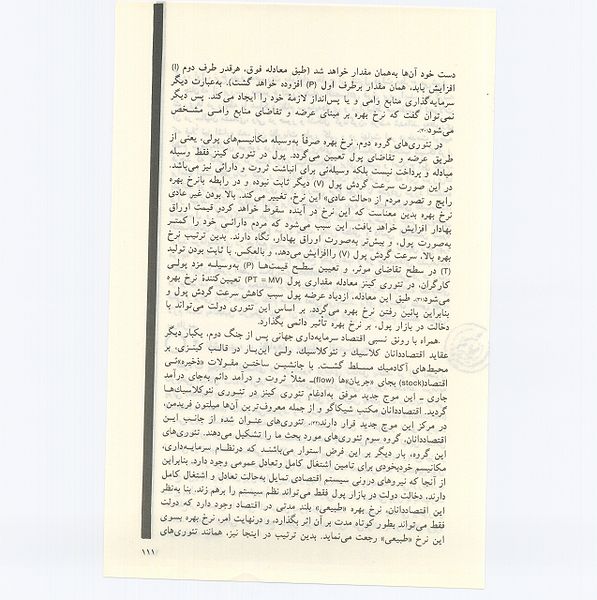 دست خود آن‌ها به‌همان مقدار خواهد شد (طبق معادله فوق، هرقدر طرف دوم (I)
افزایش یابد، همان مقدار برطرف اول (P) افزوده خواهد گشت). به‌عبارت دیگر
سرمایه‌گذاری منابع وامی و یا پس‌انداز لازمهٔ خود را ایجاد می‌کند. پس دیگر
نمی‌توان گفت که نرخ بهره بر مبنای عرضه و تقاضای منابع وامی مشخص
می‌شود
در تئوری‌های گروه دوم، نرخ بهره صرفاً به‌وسیله مکانیسم‌های پولی، یعنی از
طریق عرضه و تقاضای پول تعیین می‌گردد. پول در تئوری کینز فقط وسیله
مبادله و پرداخت نیست بلکه وسیله‌ئی برای انباشت ثروت و دارائی نیز می‌باشد.
در این صورت سرعت گردش پول (V) دیگر ثابت نبوده و در رابطه بانرخ بهره
رایج و تصور مردم از «حالت عادی» این نرخ، تغییر می‌کند. بالا بودن غیر عادی
نرخ بهره بدین معناست که این نرخ در آینده سقوط خواهد کردو قیمت اوراق
بهادار افزایش خواهد یافت. این سبب می‌شود که مردم دارائی خود را کمتر
به‌صورت پول، و بیش‌تر به‌صورت اوراق بهادار، نگاه دارند. بدین ترتیب نرخ
بهره بالا، سرعت گردش پول (V) راافزایش می‌دهد، و بالعکس. با ثابت بودن تولید
(T) در سطح تقاضای موثر، و تعیین سطح قیمت‌ها (P) به‌وسیله مزد پولی
کارگران، در تئوری کینز معادله مقداری پول (PT = MV) تعیین‌کنندهٔ نرخ بهره
می‌شود. طبق این معادله، ازدیاد عرضه پول سبب کاهش سرعت گردش پول و
بنابراین پائین رفتن نرخ بهره می‌گردد. بر اساس این تئوری دولت می‌تواند با
دخالت در بازار پول، بر نرخ بهره تأثیر دائمی بگذارد.
همراه با رونق نسبی اقتصاد سرمایه‌داری جهانی پس از جنگ دوم، یکبار دیگر
عقاید اقتصاددانان کلاسیك و نئوکلاسیك، ولی این‌بار در قالب کینزی، بر
محیط‌های آکادمیك مسلط گشت. با جانشین ساختن مقولات «ذخیره»ئی
اقتصاد(stock) بجای «جریان»ها (flow)ـ مثلاً ثروت و درآمد دائم به‌جای درآمد
جاری ـ این موج جدید موفق به‌ادغام تئوری کینز در تئوری نئوکلاسیك‌ها
گردید. اقتصاددانان مکتب شیکاگو و از جمله معروف‌ترین آن‌ها میلتون فریدمن،
در مرکز این موج جدید قرار دارند. تئوری‌های عنوان شده از جانب این
اقتصاددانان، گروه سوم تئوری‌های مورد بحث ما را تشکیل می‌دهند. تئوری‌های
این گروه، بار دیگر بر این فرض استوار می‌باشند که درنظام سرمایه‌داری،
مکانیسم خودبخودی برای تامین اشتغال کامل وتعادل عمومی وجود دارد. بنابراین
از آنجا که نیروهای درونی سیستم اقتصادی تمایل به‌حالت تعادل و اشتغال کامل
دارند، دخالت دولت در بازار پول فقط می‌تواند نظم سیستم را برهم زند. بنا به‌نظر
این اقتصاددانان، نرخ بهره «طبیعی» بلند مدتی در اقتصاد وجود دارد که دولت
فقط می‌تواند بطور کوتاه مدت بر آن اثر بگذارد، و درنهایت امر، نرخ بهره بسوی
این نرخ «طبیعی» رجعت می‌نماید. بدین ترتیب در اینجا نیز، همانند تئوری‌های
۱۱۱